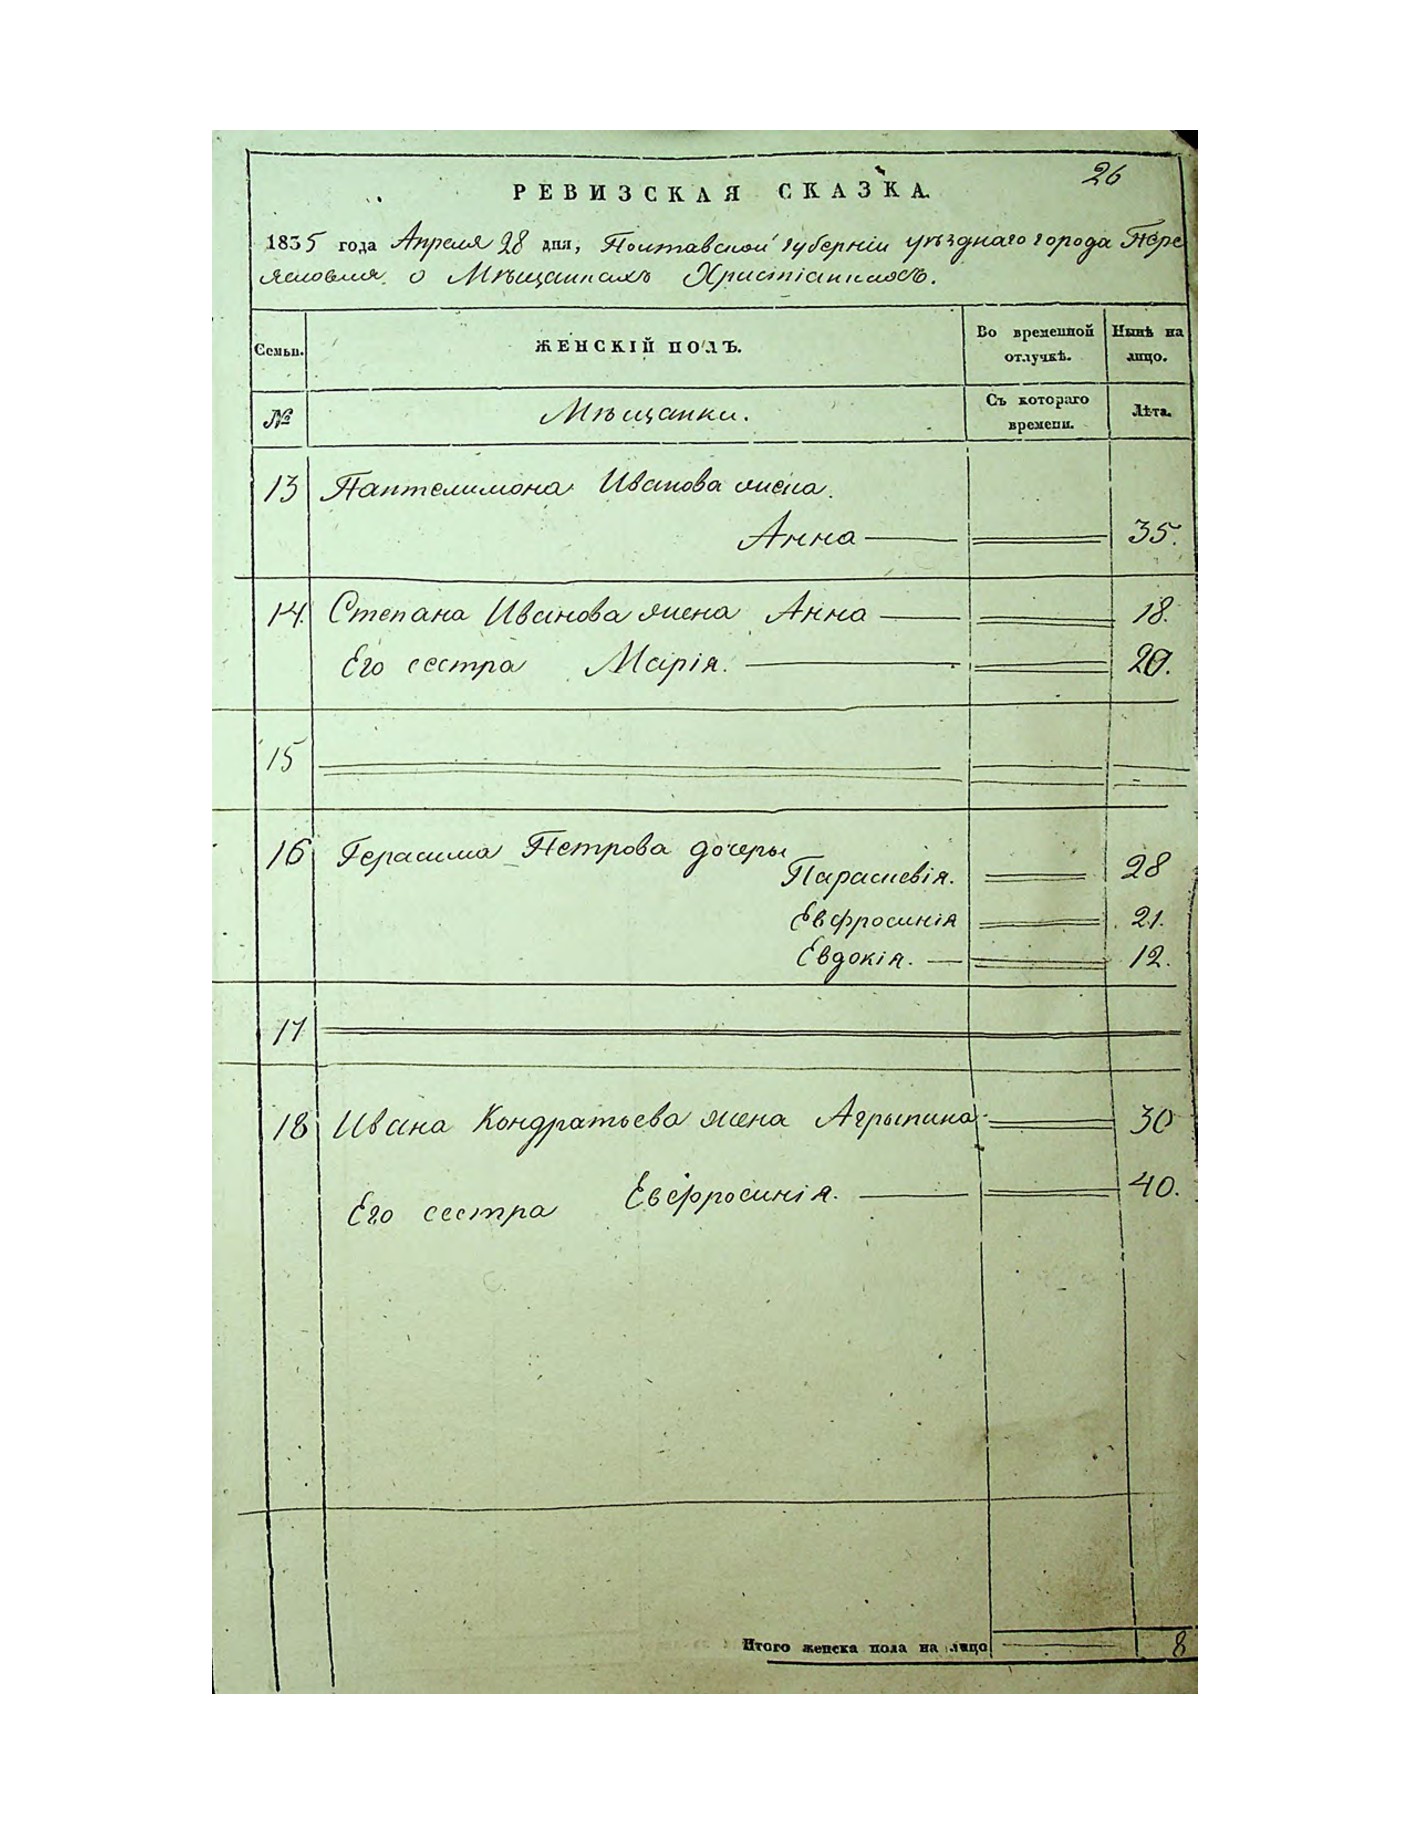 26
РЕВИЗСКАЯ СКАЗКА.
1835 года Апреля 28 дня, Полтавской губерніи уѣзднаго города Пере
яславля о Мѣщанкахъ Христіанкахъ.
Семьи. ЖЕНСКІЙ ПОЛЪ. Во временной отлучкѣ. Нынѣ на лицо.
№ Мѣщанки. Съ котораго времени. Лѣта.
13 Пантелимона Иванова жена
Анна 35.
14. Степана Иванова жена Анна 18.
Его сестра Марія. 20.
15
16 Герасима Петрова дочеры
Параскевія. 28
Евфросинія 21.
Евдокія. 12.
17
18 Ивана Кондратьева жена Агрыпина 30
Его сестра Евфросинія. 40.
Итого женска пола на лицо 8